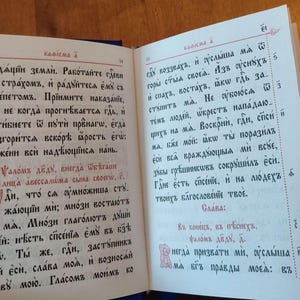 каѳісма а҃
дѧщїи земли. Работайте гд҇еви
страхомъ, и радꙋйтесѧ ємꙋ съ
епетомъ. Прїимите наказанїе,
не когда прогнѣваетсѧ гд҇ь, и
гибнете ѿ пꙋти праведнагѡ, єгда
згоритсѧ вскорѣ ꙗрость єгѡ:
жени вси надѣющїисѧ нань.
Ѱаломъ дв҃дꙋ, внегда ѿбѣгаше
лица авессалѡма сына своегѡ, г҃.
ди, что сѧ оумножиша стꙋ
жающїи ми; мнози востаютъ
мѧ. Мнози глаголютъ дꙋши
ей: нѣсть сп҃сенїѧ ємꙋ въ бз҃ѣ
Ты же, гд҇и, застꙋпникъ
єси, слава моѧ, и возносѧй
вꙋ мою. Гласомъ моимъ ко
каѳісма а҃
є҃і
гдꙋ воззвахъ, и оуслыша мѧ ѿ
горы ст҃ыѧ своеѧ. Азъ оуснꙋхъ
и спахъ, востахъ, ꙗкѡ гд҇ь за-
стꙋпитъ мѧ. Не оубоюсѧ ѿ
темъ людей, ѡкрестъ нападаю-
щихъ на мѧ. Воскр҇ни, гд҇и, сп҃си
мѧ, бж҃е мой: ꙗкѡ ты поразилъ
єси всѧ враждꙋющыѧ ми всꙋе,
зꙋбы грѣшникѡвъ сокрꙋшилъ єси.
Гд҇не єсть сп҃сенїе, и на людехъ
твоихъ благословенїе твое.
Слава:
Въ конецъ, въ пѣснехъ,
ѱаломъ дв҃дꙋ, д҃.
Внегда призвати ми, оуслыша
мѧ бг҃ъ правды моеѧ: въ